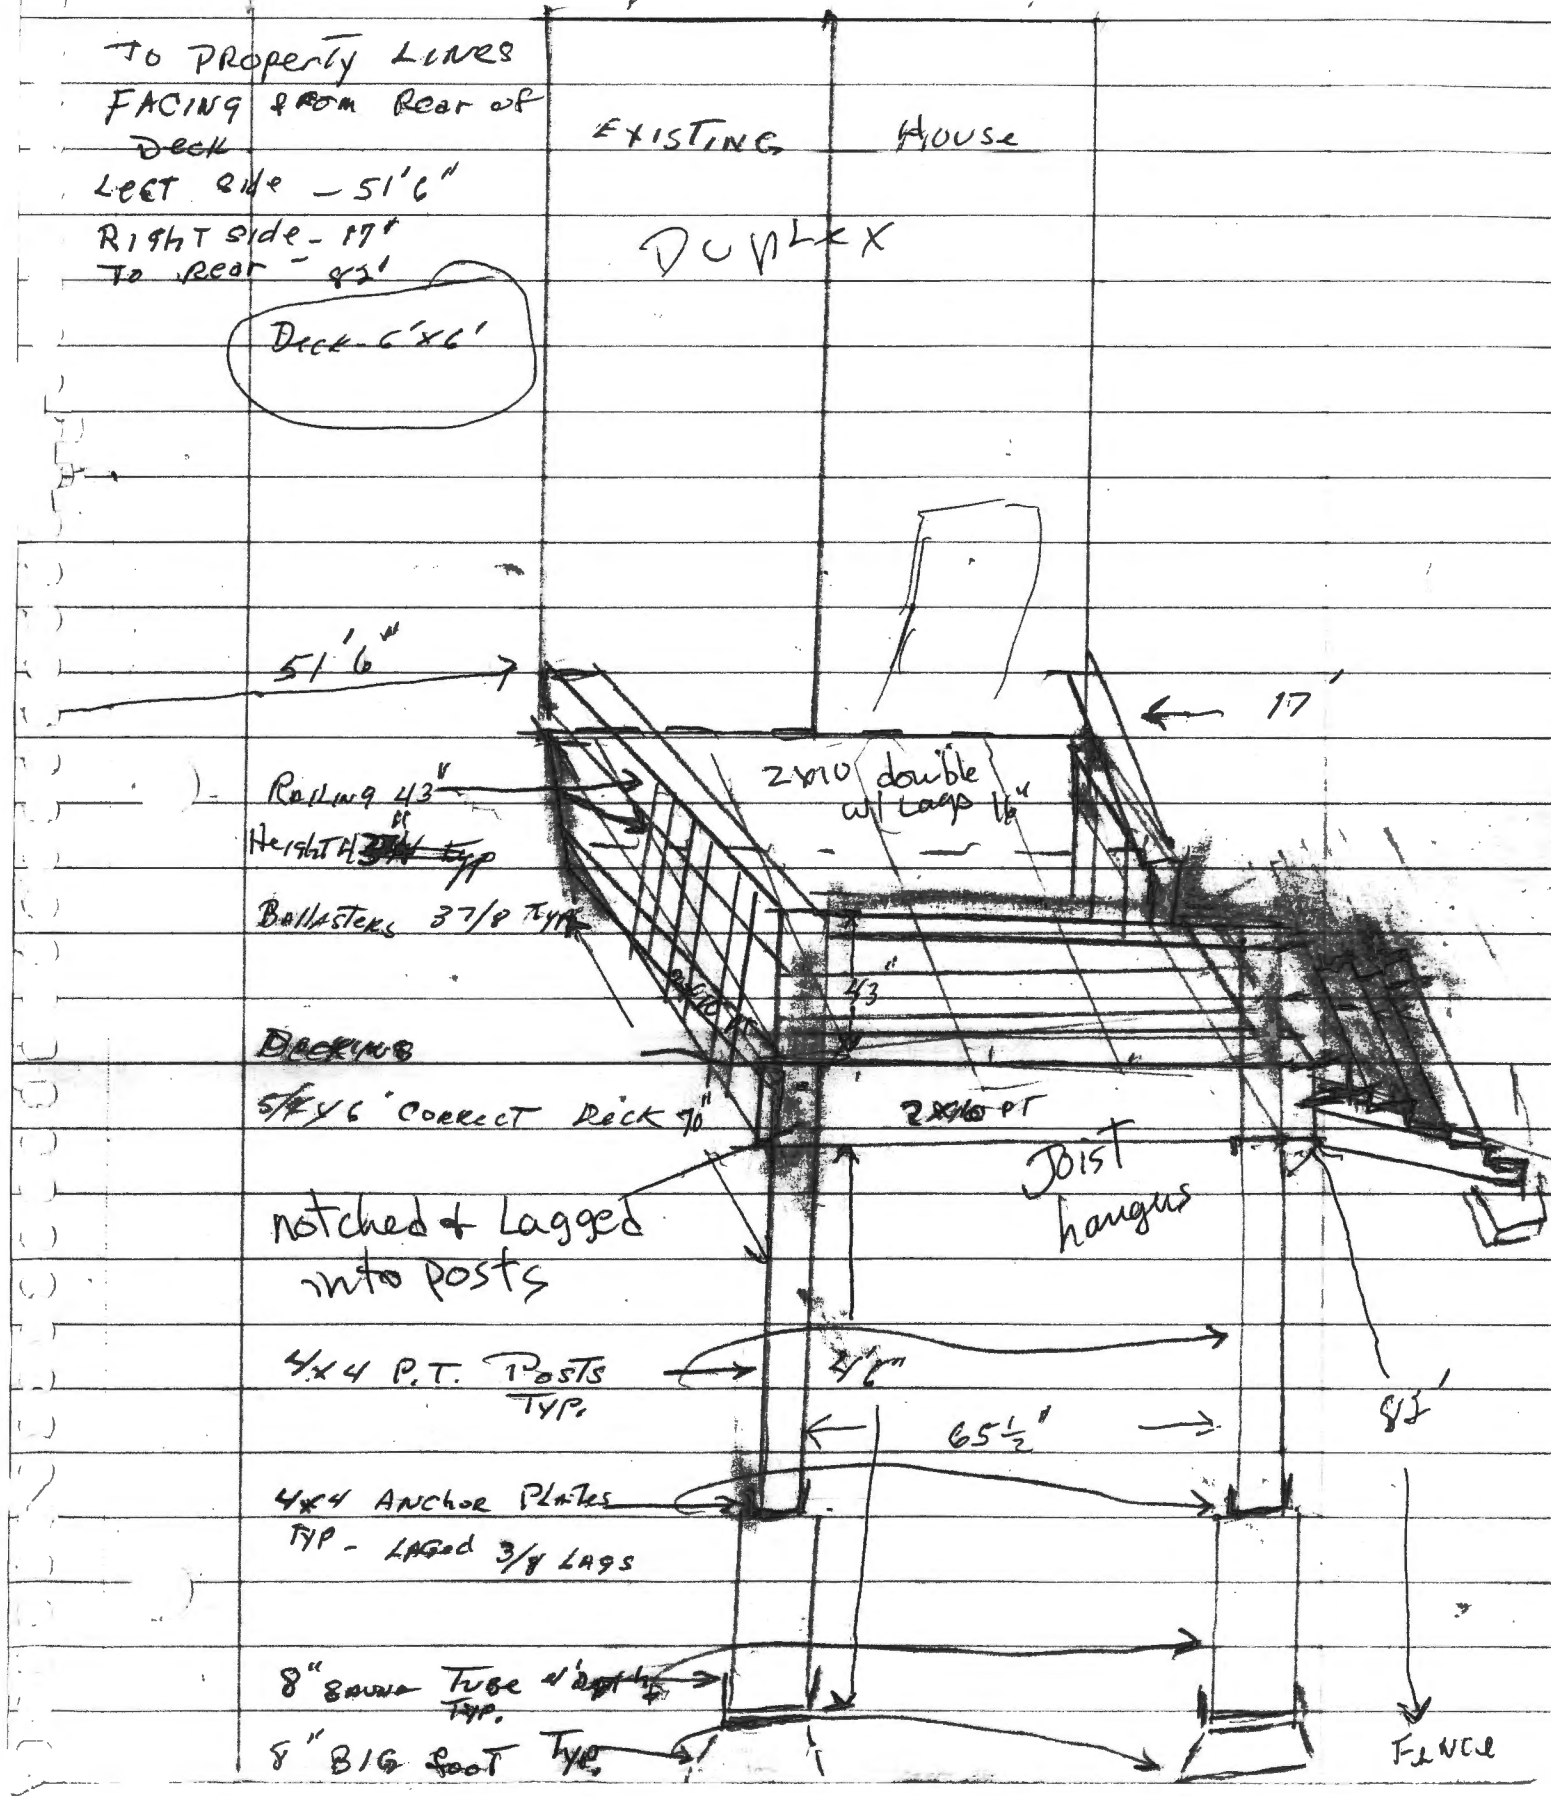 To Property Lines
FACING from Rear of
Deck
Left side - 51'6"
Right side - 17'
To Rear - 82'
Deck - 6'x6'
EXISTING House
Duplex
51'6"
17'
2x10 double
w/ Lags 16"
Railing 43"
Height typ
Ballasters 3 7/8 Typ
43"
Decking
5/4x6 Correct Deck
2x10 PT
Joist
hangus
notched & Lagged
into posts
4x4 P.T. Posts
Typ.
4'6"
82'
65 1/2"
4x4 Anchor Plates
Typ - Laged 3/8 Lags
8" Tube 4'
Typ.
8" BIG foot Typ.
Fence